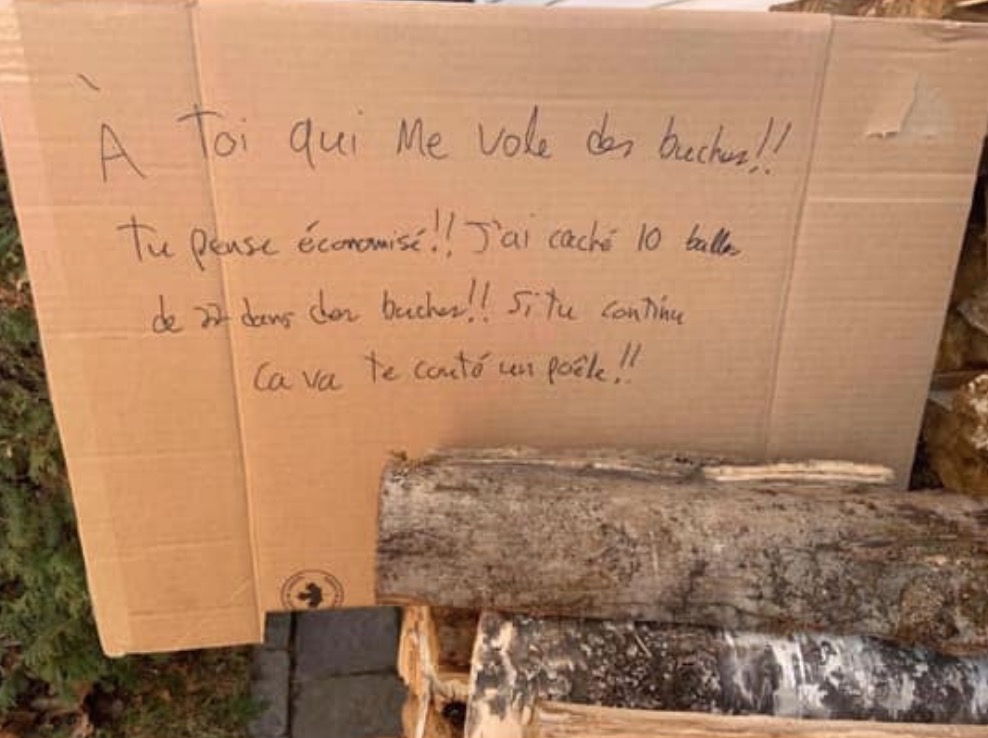 À Toi qui Me vole des buches!!
Tu pense économisé!! J'ai caché 10 balles
de 22 dans des buches!! Si tu continu
Ca va te couté un poêle!!